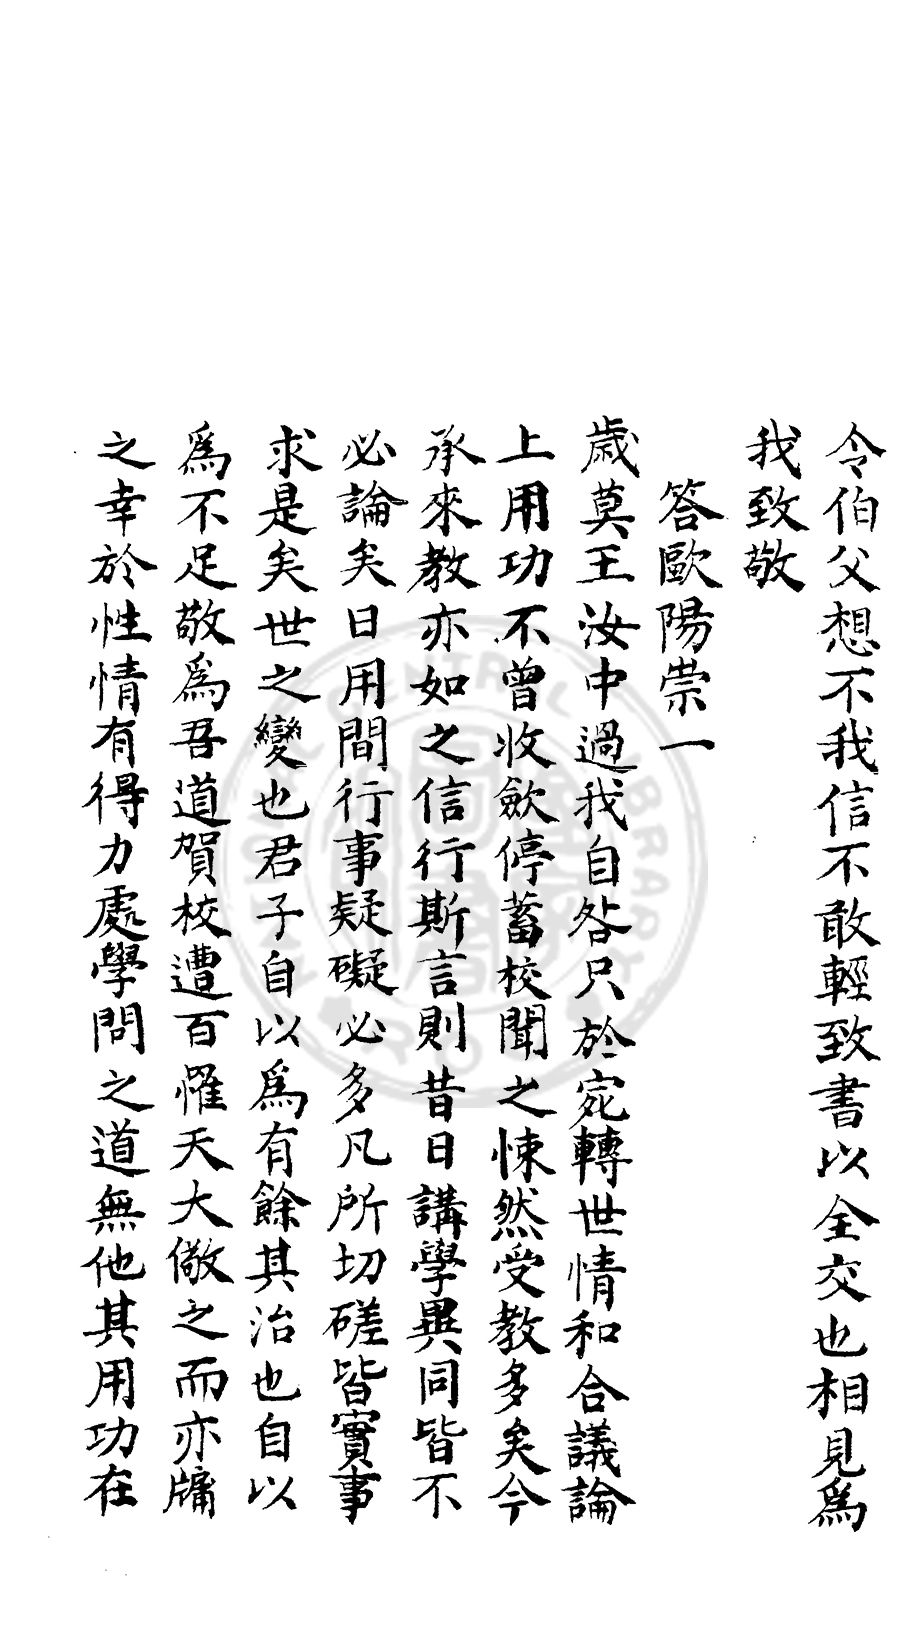 令伯父想不我信不敢輕致書以全交也相見爲
我致敬
答歐陽崇一
歲莫王汝中過我自咎只於宛轉世情和合議論
上用功不曾收歛停蓄校聞之悚然受教多矣今
承來教亦如之信行斯言則昔日講學異同皆不
必論矣日用間行事疑礙必多凡所切磋皆實事
求是矣世之變也君子自以爲有餘其治也自以
爲不足敬爲吾道賀校遭百罹天大儆之而亦牖
之幸於性情有得力處學問之道無他其用功在
NATIONAL CENTRAL LIBRARY